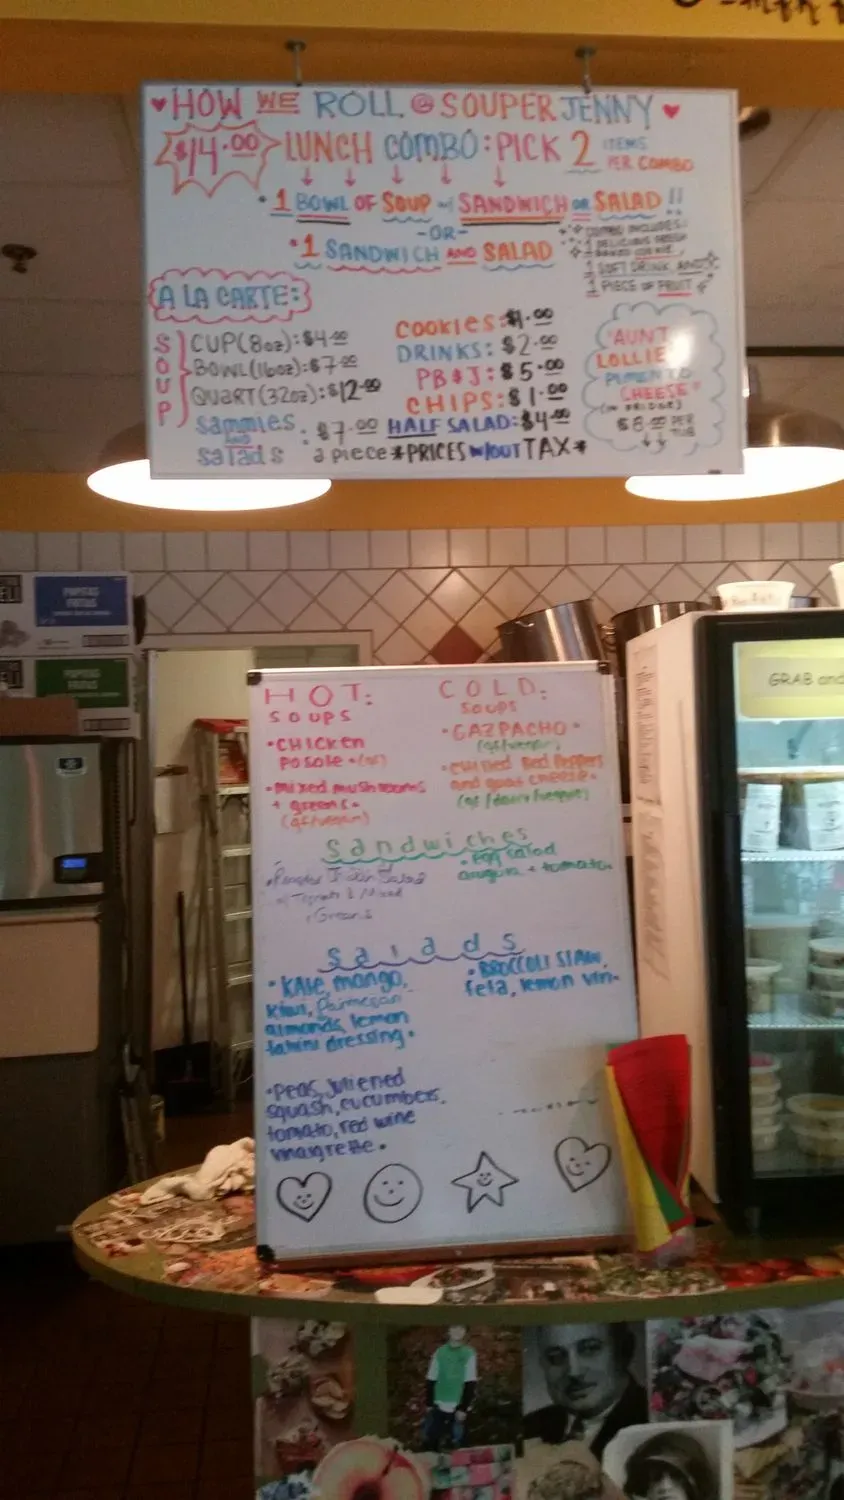 ♥HOW WE ROLL @ SOUPERJENNY♥
$14.00 LUNCH COMBO: PICK 2 ITEMS PER COMBO
•1 BOWL OF SOUP w/ SANDWICH OR SALAD!!
-OR-
•1 SANDWICH AND SALAD
COMBO INCLUDES:
1 DELICIOUS FRESH
BAKED COOKIE,
1 SOFT DRINK AND
1 PIECE OF FRUIT
A LA CARTE:
SOUP
CUP(8oz):$4.00
BOWL(16oz):$7.00
QUART(32oz):$12.00
Sammies AND Salads: $7.00 a piece
COOKIES:$1.00
DRINKS: $2.00
PB&J:$5.00
CHIPS:$1.00
HALF SALAD:$4.00
*PRICES w/OUT TAX*
"AUNT
LOLLIE
PIMENTO
CHEESE"
(IN FRIDGE)
$8.00 PER TUB
GRAB and
HOT:
SOUPS
•CHICKEN
POSOLE•(GF)
•MIXED mushrooms
+ greens•
(gf/vegan)
COLD:
SOUPS
•GAZPACHO•
(gf/vegan)
•Chilled Red Peppers
and goat cheese•
Sandwiches
Salad
Greens
•Egg salad
arugula + tomato•
Salads
•KALE, mango,
kiwi, parmesan
almonds, lemon
tahini dressing•
•BROCCOLI SLAW,
feta, lemon vin•
•Peas, juliened
squash, cucumbers,
tomato, red wine
vinaigrette•